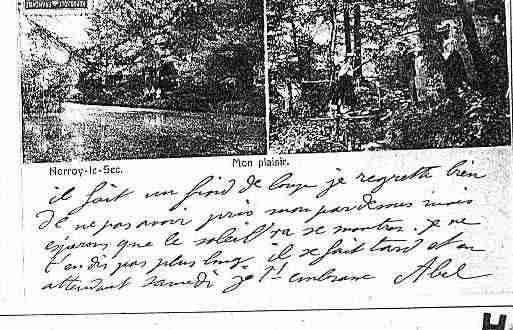 Norroy-le-Sec.
Mon plaisir.
il fait un froid de loup je regrette bien
de ne pas avoir pris mon pardessus mais
espérons que le soleil va se montrer. Je ne
t'en dis pas plus long il se fait tard et en
attendant samedi je t'embrasse Abel
H